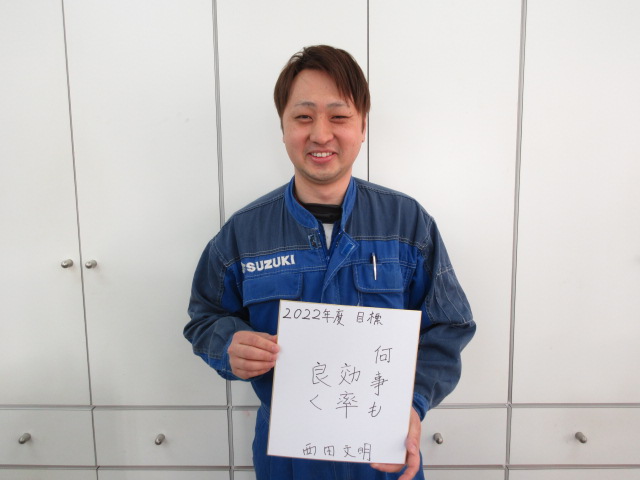 SUZUKI
2022年度 目標
何事も
効率
良く
西田文明